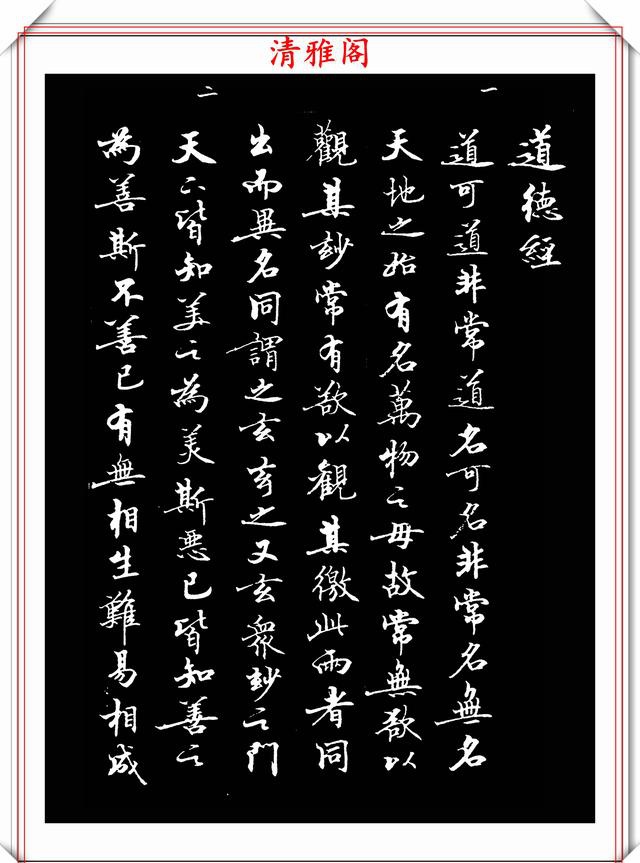 清雅阁
道德經
一
道可道非常道名可名非常名無名
天地之始有名萬物之母故常無欲以
觀其玅常有欲以觀其徼此兩者同
出而異名同謂之玄玄之又玄衆玅之門
二
天下皆知美之為美斯惡已皆知善之
為善斯不善已有無相生難易相成